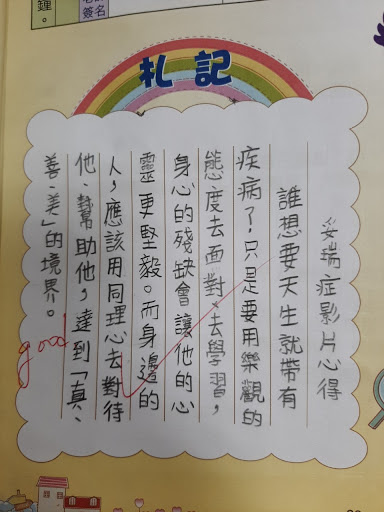 鐘。
簽名
札記
妥瑞症影片心得
誰想要天生就帶有
疾病了，只是要用樂觀的
態度去面對、去學習，
身心的殘缺會讓他的心
靈更堅毅。而身邊的
人，應該用同理心去對待
他、幫助他，達到「真、
善、美」的境界。
good